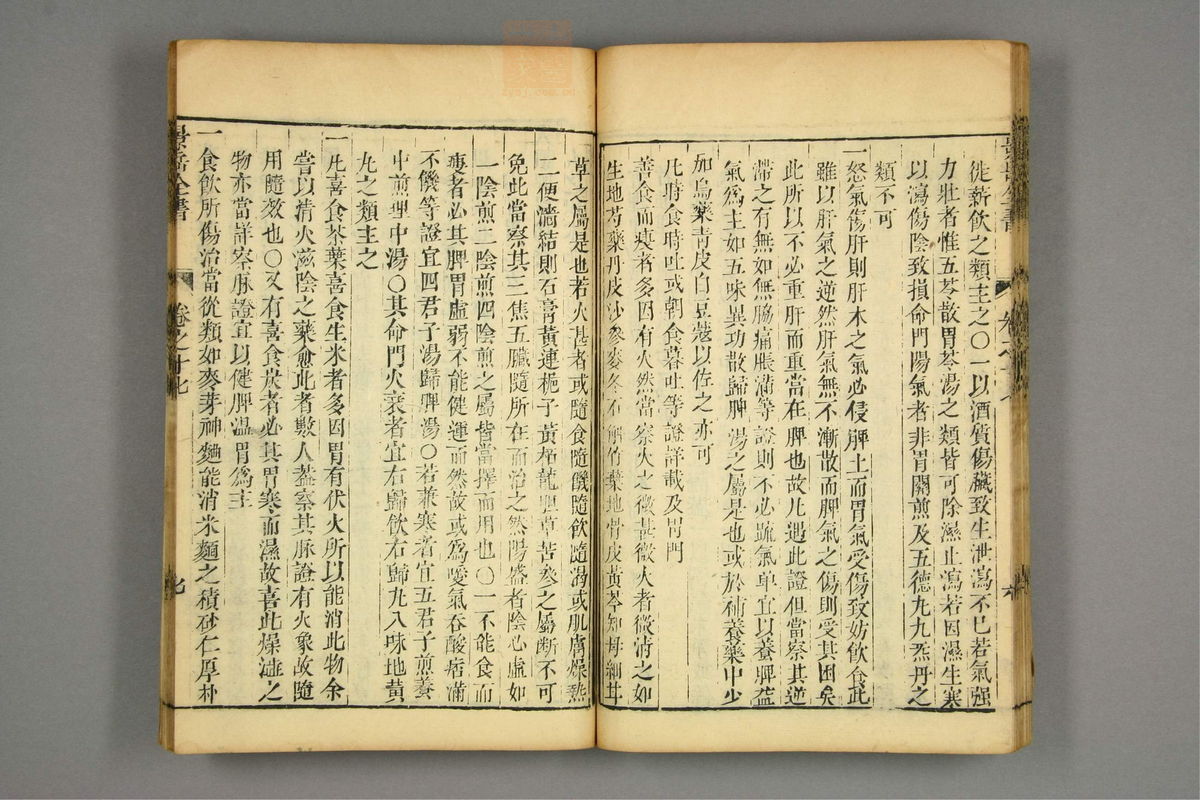 徙薪飲之類主之〇一以酒質傷臟致生泄瀉不已若氣强
力壯者惟五苓散胃苓湯之類皆可除濕止瀉若因濕生寒
以瀉傷陰致損命門陽氣者非胃關煎及五德丸九炁丹之
類不可
一怒氣傷肝則肝木之氣必侵脾土而胃氣受傷致妨飲食此
雖以肝氣之逆然肝氣無不漸散而脾氣之傷則受其困矣
此所以不必重肝而重當在脾也故凡遇此證但當察其逆
滯之有無如無脇痛脹滿等證則不必疏氣单宜以養脾益
氣爲主如五味異功散歸脾湯之屬是也或於補養藥中少
加烏藥青皮白豆蔻以佐之亦可
凡時食時吐或朝食暮吐等證詳載及胃門
善食而瘦者多因有火然當察火之微甚微火者微清之如
生地芍藥丹皮沙參麥冬石斛竹葉地骨皮黃芩知母細甘
草之屬是也若火甚者或隨食隨饑隨飲隨渴或肌膚燥熱
二便濇結則石膏黃連梔子黃蘗龍胆草苦參之屬断不可
免此當察其三焦五臟隨所在而治之然陽盛者陰必虛如
一陰煎二陰煎四陰煎之屬皆當擇而用也〇一不能食而
瘦者必其脾胃虛弱不能健運而然故或爲噯氣吞酸痞滿
不饑等證宜四君子湯歸脾湯〇若兼寒者宜五君子煎養
中煎理中湯〇其命門火衰者宜右歸飲右歸丸八味地黃
丸之類主之
一凡喜食茶葉喜食生米者多因胃有伏火所以能消此物余
嘗以清火滋陰之藥愈此者數人蓋察其脉證有火象故隨
用隨效也〇又有喜食炭者必其胃寒而濕故喜此燥澁之
物亦當詳察脉證宜以健脾溫胃爲主
一食飲所傷治當從類如麥芽神麯能消米麵之積砂仁厚朴
景岳全書
卷之十七
七